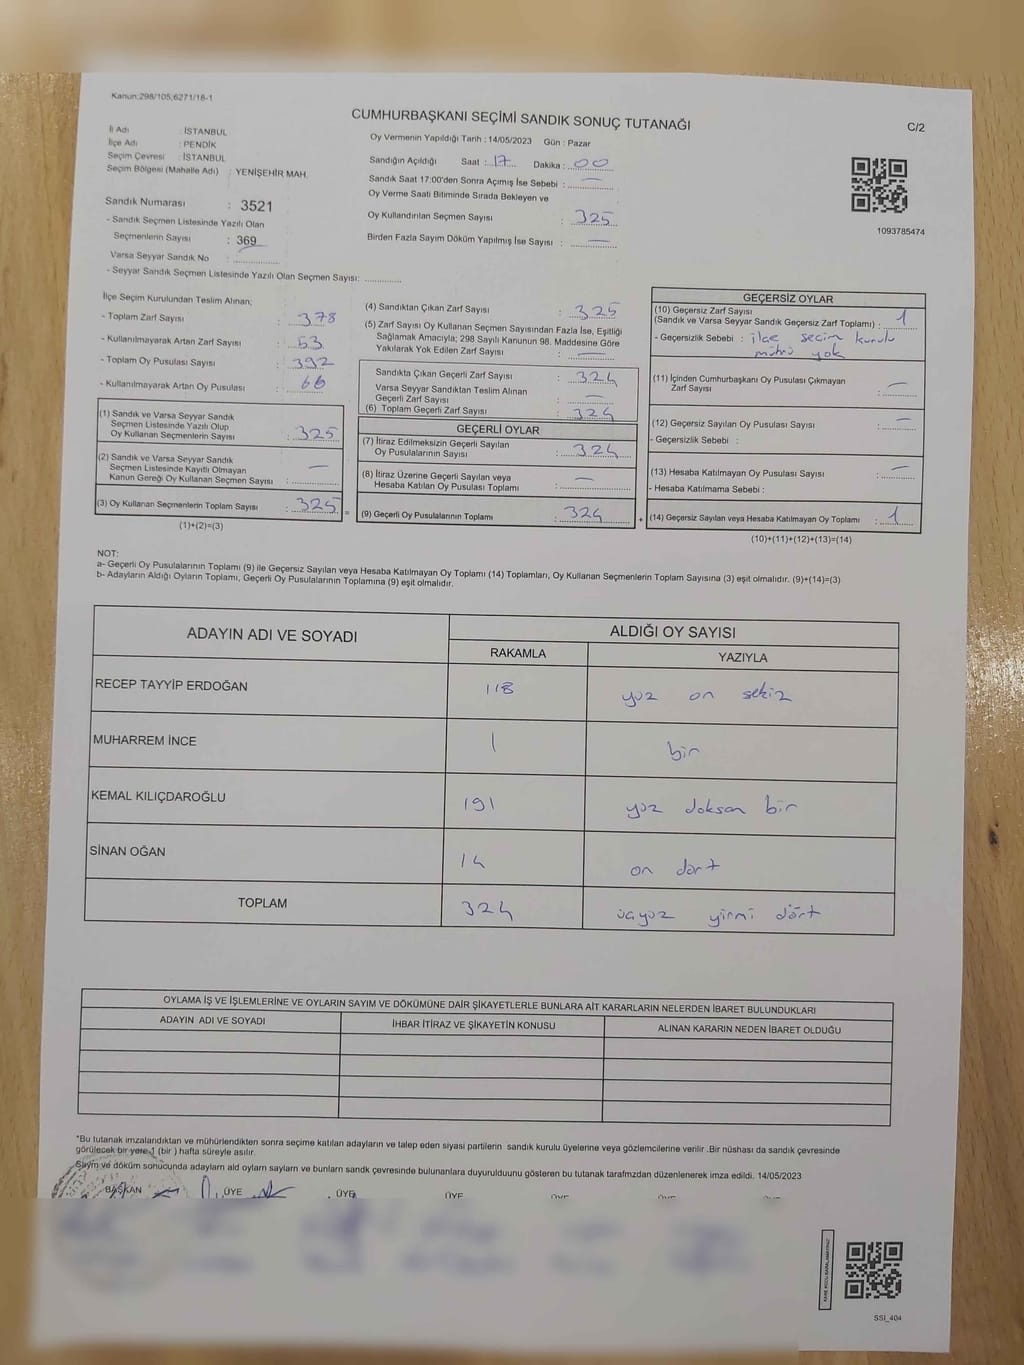 Kanun:298/105,6271/18-1
CUMHURBAŞKANI SEÇİMİ SANDIK SONUÇ TUTANAĞI
C/2
İl Adı : İSTANBUL
İlçe Adı : PENDİK
Seçim Çevresi : İSTANBUL
Seçim Bölgesi (Mahalle Adı) : YENİŞEHİR MAH.
Sandık Numarası : 3521
- Sandık Seçmen Listesinde Yazılı Olan
Seçmenlerin Sayısı : 369
Varsa Seyyar Sandık No :
- Seyyar Sandık Seçmen Listesinde Yazılı Olan Seçmen Sayısı:
Oy Vermenin Yapıldığı Tarih : 14/05/2023 Gün : Pazar
Sandığın Açıldığı Saat : 17 Dakika : 00
Sandık Saat 17:00'den Sonra Açımış İse Sebebi : —
Oy Verme Saati Bitiminde Sırada Bekleyen ve
Oy Kullandırılan Seçmen Sayısı : 325
Birden Fazla Sayım Döküm Yapılmış İse Sayısı : —
1093785474
İlçe Seçim Kurulundan Teslim Alınan;
- Toplam Zarf Sayısı : 378
- Kullanılmayarak Artan Zarf Sayısı : 53
- Toplam Oy Pusulası Sayısı : 392
- Kullanılmayarak Artan Oy Pusulası : 66
(1) Sandık ve Varsa Seyyar Sandık
Seçmen Listesinde Yazılı Olup
Oy Kullanan Seçmenlerin Sayısı : 325
(2) Sandık ve Varsa Seyyar Sandık
Seçmen Listesinde Kayıtlı Olmayan
Kanun Gereği Oy Kullanan Seçmen Sayısı : —
(3) Oy Kullanan Seçmenlerin Toplam Sayısı : 325 =
(1)+(2)=(3)
(4) Sandıktan Çıkan Zarf Sayısı : 325
(5) Zarf Sayısı Oy Kullanan Seçmen Sayısından Fazla İse, Eşitliği
Sağlamak Amacıyla; 298 Sayılı Kanunun 98. Maddesine Göre
Yakılarak Yok Edilen Zarf Sayısı : —
Sandıkta Çıkan Geçerli Zarf Sayısı : 324
Varsa Seyyar Sandıktan Teslim Alınan
Geçerli Zarf Sayısı : —
(6) Toplam Geçerli Zarf Sayısı : 324
GEÇERLİ OYLAR
(7) İtiraz Edilmeksizin Geçerli Sayılan
Oy Pusulalarının Sayısı : 324
(8) İtiraz Üzerine Geçerli Sayılan veya
Hesaba Katılan Oy Pusulası Toplamı : —
(9) Geçerli Oy Pusulalarının Toplamı : 324 +
GEÇERSİZ OYLAR
(10) Geçersiz Zarf Sayısı
(Sandık ve Varsa Seyyar Sandık Geçersiz Zarf Toplamı) : 1
- Geçersizlik Sebebi : ilçe seçim kurulu
mührü yok
(11) İçinden Cumhurbaşkanı Oy Pusulası Çıkmayan
Zarf Sayısı : —
(12) Geçersiz Sayılan Oy Pusulası Sayısı : —
- Geçersizlik Sebebi :
(13) Hesaba Katılmayan Oy Pusulası Sayısı : —
- Hesaba Katılmama Sebebi :
(14) Geçersiz Sayılan veya Hesaba Katılmayan Oy Toplamı : 1
(10)+(11)+(12)+(13)=(14)
NOT:
a- Geçerli Oy Pusulalarının Toplamı (9) ile Geçersiz Sayılan veya Hesaba Katılmayan Oy Toplamı (14) Toplamları, Oy Kullanan Seçmenlerin Toplam Sayısına (3) eşit olmalıdır. (9)+(14)=(3)
b- Adayların Aldığı Oyların Toplamı, Geçerli Oy Pusulalarının Toplamına (9) eşit olmalıdır.
ADAYIN ADI VE SOYADI
ALDIĞI OY SAYISI
RAKAMLA YAZIYLA
RECEP TAYYİP ERDOĞAN 118 yüz on sekiz
MUHARREM İNCE 1 bir
KEMAL KILIÇDAROĞLU 191 yüz doksan bir
SİNAN OĞAN 14 on dört
TOPLAM 324 üçyüz yirmi dört
OYLAMA İŞ VE İŞLEMLERİNE VE OYLARIN SAYIM VE DÖKÜMÜNE DAİR ŞİKAYETLERLE BUNLARA AİT KARARLARIN NELERDEN İBARET BULUNDUKLARI
ADAYIN ADI VE SOYADI İHBAR İTİRAZ VE ŞİKAYETİN KONUSU ALINAN KARARIN NEDEN İBARET OLDUĞU
*Bu tutanak imzalandıktan ve mühürlendikten sonra seçime katılan adayların ve talep eden siyasi partilerin sandık kurulu üyelerine veya gözlemcilerine verilir .Bir nüshası da sandık çevresinde
görülecek bir yere 1 (bir ) hafta süreyle asılır.
Sayım ve döküm sonucunda adayların ald oyların sayların ve bunların sandk çevresinde bulunanlara duyurulduunu gösteren bu tutanak tarafmzdan düzenlenerek imza edildi. 14/05/2023
BAŞKAN ÜYE ÜYE ÜYE ÜYE
SSI_404